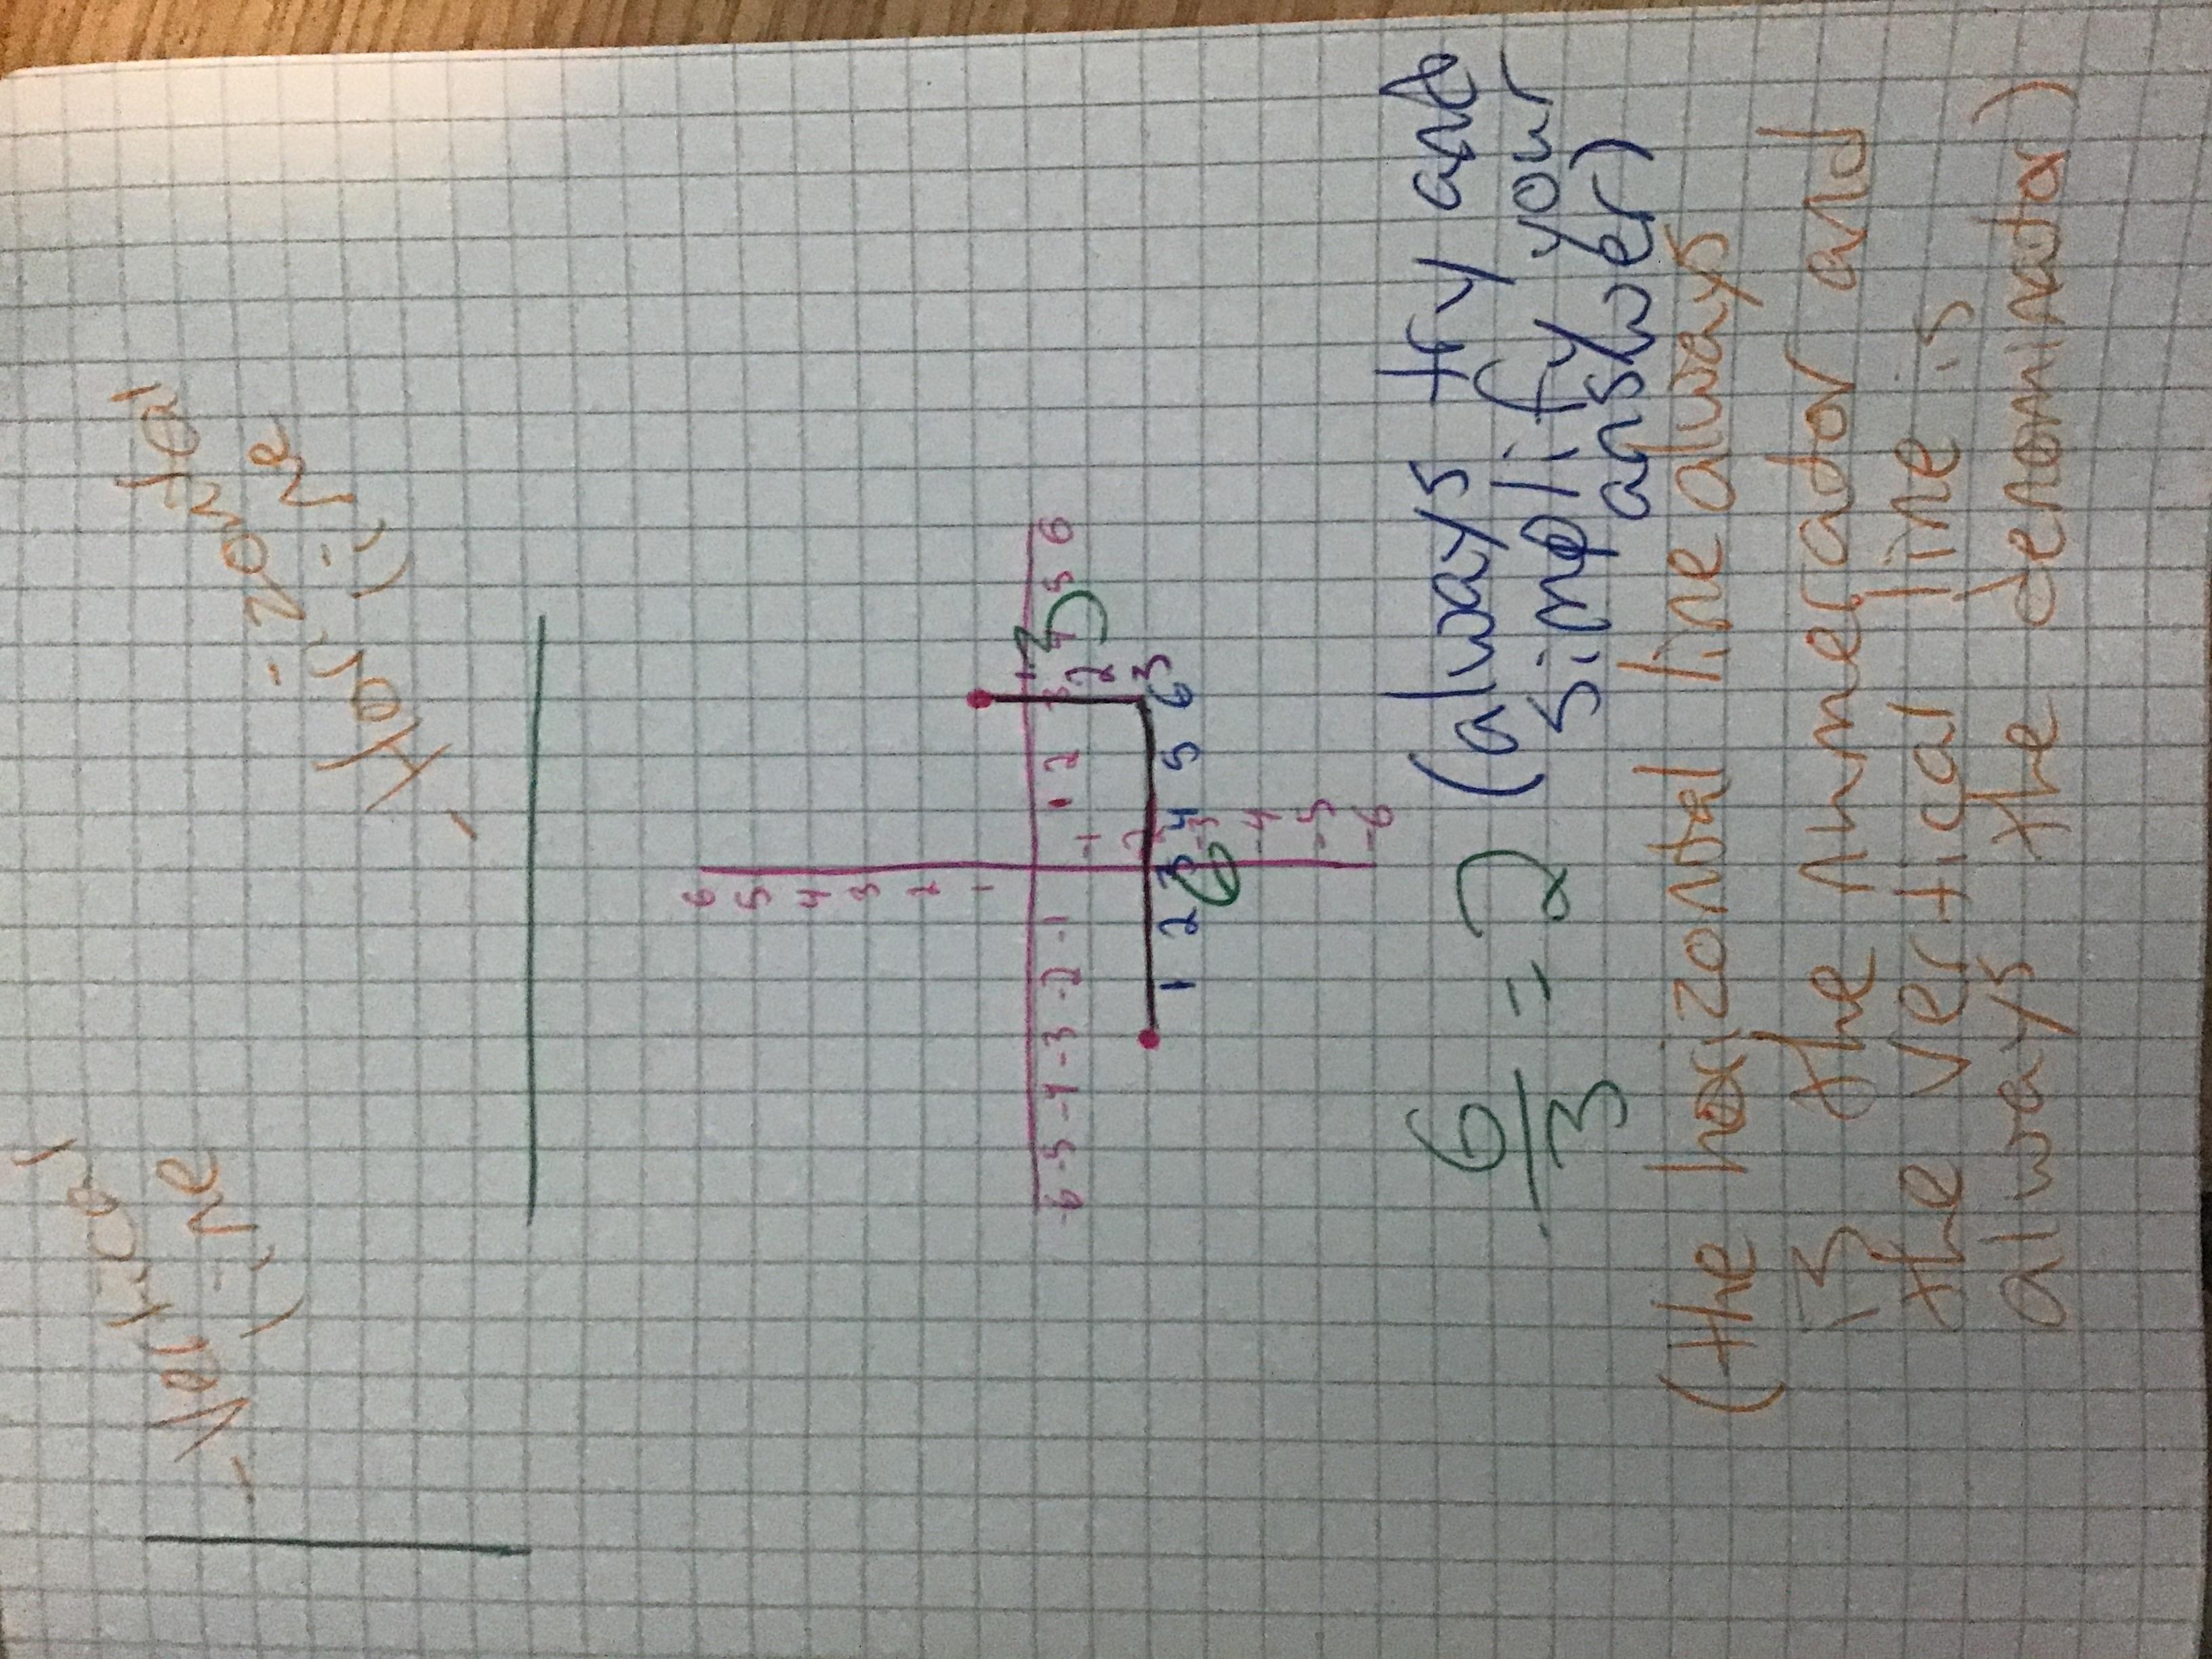 - Vertical
line
- Horizontal
line
6
5
4
3
2
1
-6 -5 -4 -3 -2 -1 1 2 3 4 5 6
1
2
3
3
-1
-2
-3
-4
-5
-6
1 2 3 4 5 6
6
6/3 = 2 (always try and
simplify your
answer)
(the horizontal line always
is the numerador and
the vertical line is
allways the denominator)